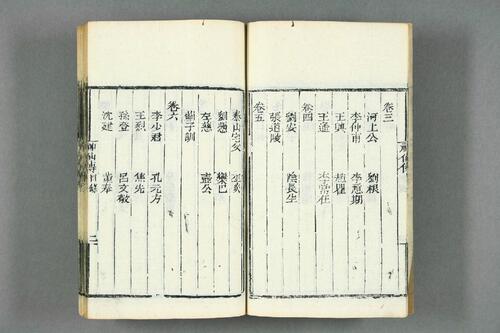 神仙傳
卷三
河上公 劉根
李仲甫 李意期
王興 趙瞿
王遙 李常在
卷四
劉安 陰長生
張道陵
卷五
泰山老父 巫炎
劉憑 欒巴
左慈 壺公
薊子訓
卷六
李少君 孔元方
王烈 焦先
孫登 呂文敬
沈建 董奉
神仙傳目錄 二